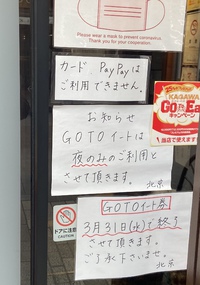 Please wear a mask to prevent coronavirus.
Thank you for your cooperation.
カード PayPayは
ご利用できません。
お知らせ
GOTOイートは
夜のみのご利用と
させて頂きます。
北京
KAGAWA
Go To Eat
キャンペーン
当店で使えます
GOTOイート券
3月31日(水)で終了
させて頂きます。
ご了承下さいませ。
北京
ドアに注意
CAUTION